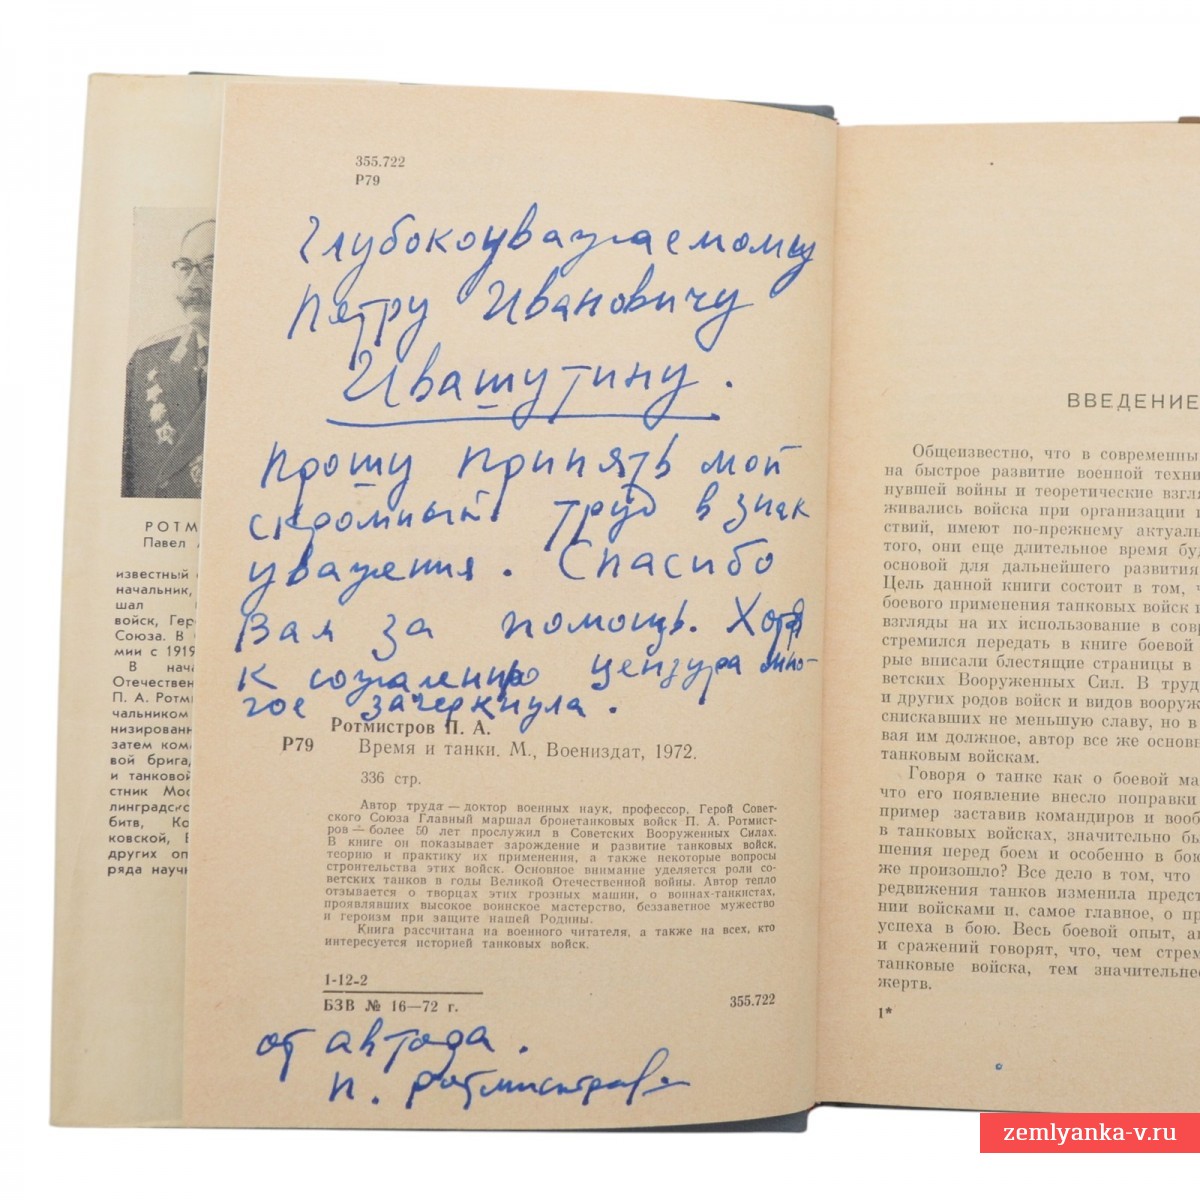 355.722
Р79
Глубокоуважаемому
Петру Ивановичу
Ивашутину.
Прошу принять мой
скромный труд в знак
уважения. Спасибо
Вам за помощь. Хотя
к сожалению цензура мно-
гое зачеркнула.
Ротмистров П. А.
Р79 Время и танки. М., Воениздат, 1972.
336 стр.
Автор труда — доктор военных наук, профессор, Герой Совет-
ского Союза Главный маршал бронетанковых войск П. А. Ротмист-
ров — более 50 лет прослужил в Советских Вооруженных Силах.
В книге он показывает зарождение и развитие танковых войск,
теорию и практику их применения, а также некоторые вопросы
строительства этих войск. Основное внимание уделяется роли со-
ветских танков в годы Великой Отечественной войны. Автор тепло
отзывается о творцах этих грозных машин, о воинах-танкистах,
проявлявших высокое воинское мастерство, беззаветное мужество
и героизм при защите нашей Родины.
Книга рассчитана на военного читателя, а также на всех, кто
интересуется историей танковых войск.
1-12-2
БЗВ № 16—72 г.
355.722
от автора.
П. Ротмистров
РОТМ
Павел
известный
начальник,
шал
войск, Гер
Союза. В
мии с 1919
В нача
Отечествен
П. А. Ротми
чальником
низирован
затем ком
вой брига
и танковой
стник Мос
линградс
битв, Ко
ковской,
других оп
ряда науч
ВВЕДЕНИЕ
Общеизвестно, что в современны
на быстрое развитие военной техни
нувшей войны и теоретические взгля
живались войска при организации и
ствий, имеют по-прежнему актуаль
того, они еще длительное время буд
основой для дальнейшего развития
Цель данной книги состоит в том, ч
боевого применения танковых войск и
взгляды на их использование в сов
стремился передать в книге боевой
рые вписали блестящие страницы в
ветских Вооруженных Сил. В труд
и других родов войск и видов вооруж
снискавших не меньшую славу, но в
вая им должное, автор все же основн
танковым войскам.
Говоря о танке как о боевой ма
что его появление внесло поправки
пример заставив командиров и вооб
в танковых войсках, значительно бы
шения перед боем и особенно в бою
же произошло? Все дело в том, что
редвижения танков изменила предст
нии войсками и, самое главное, о пр
успеха в бою. Весь боевой опыт, а
и сражений говорят, что, чем стрем
танковые войска, тем значительнее
жертв.
1*
zemlyanka-v.ru